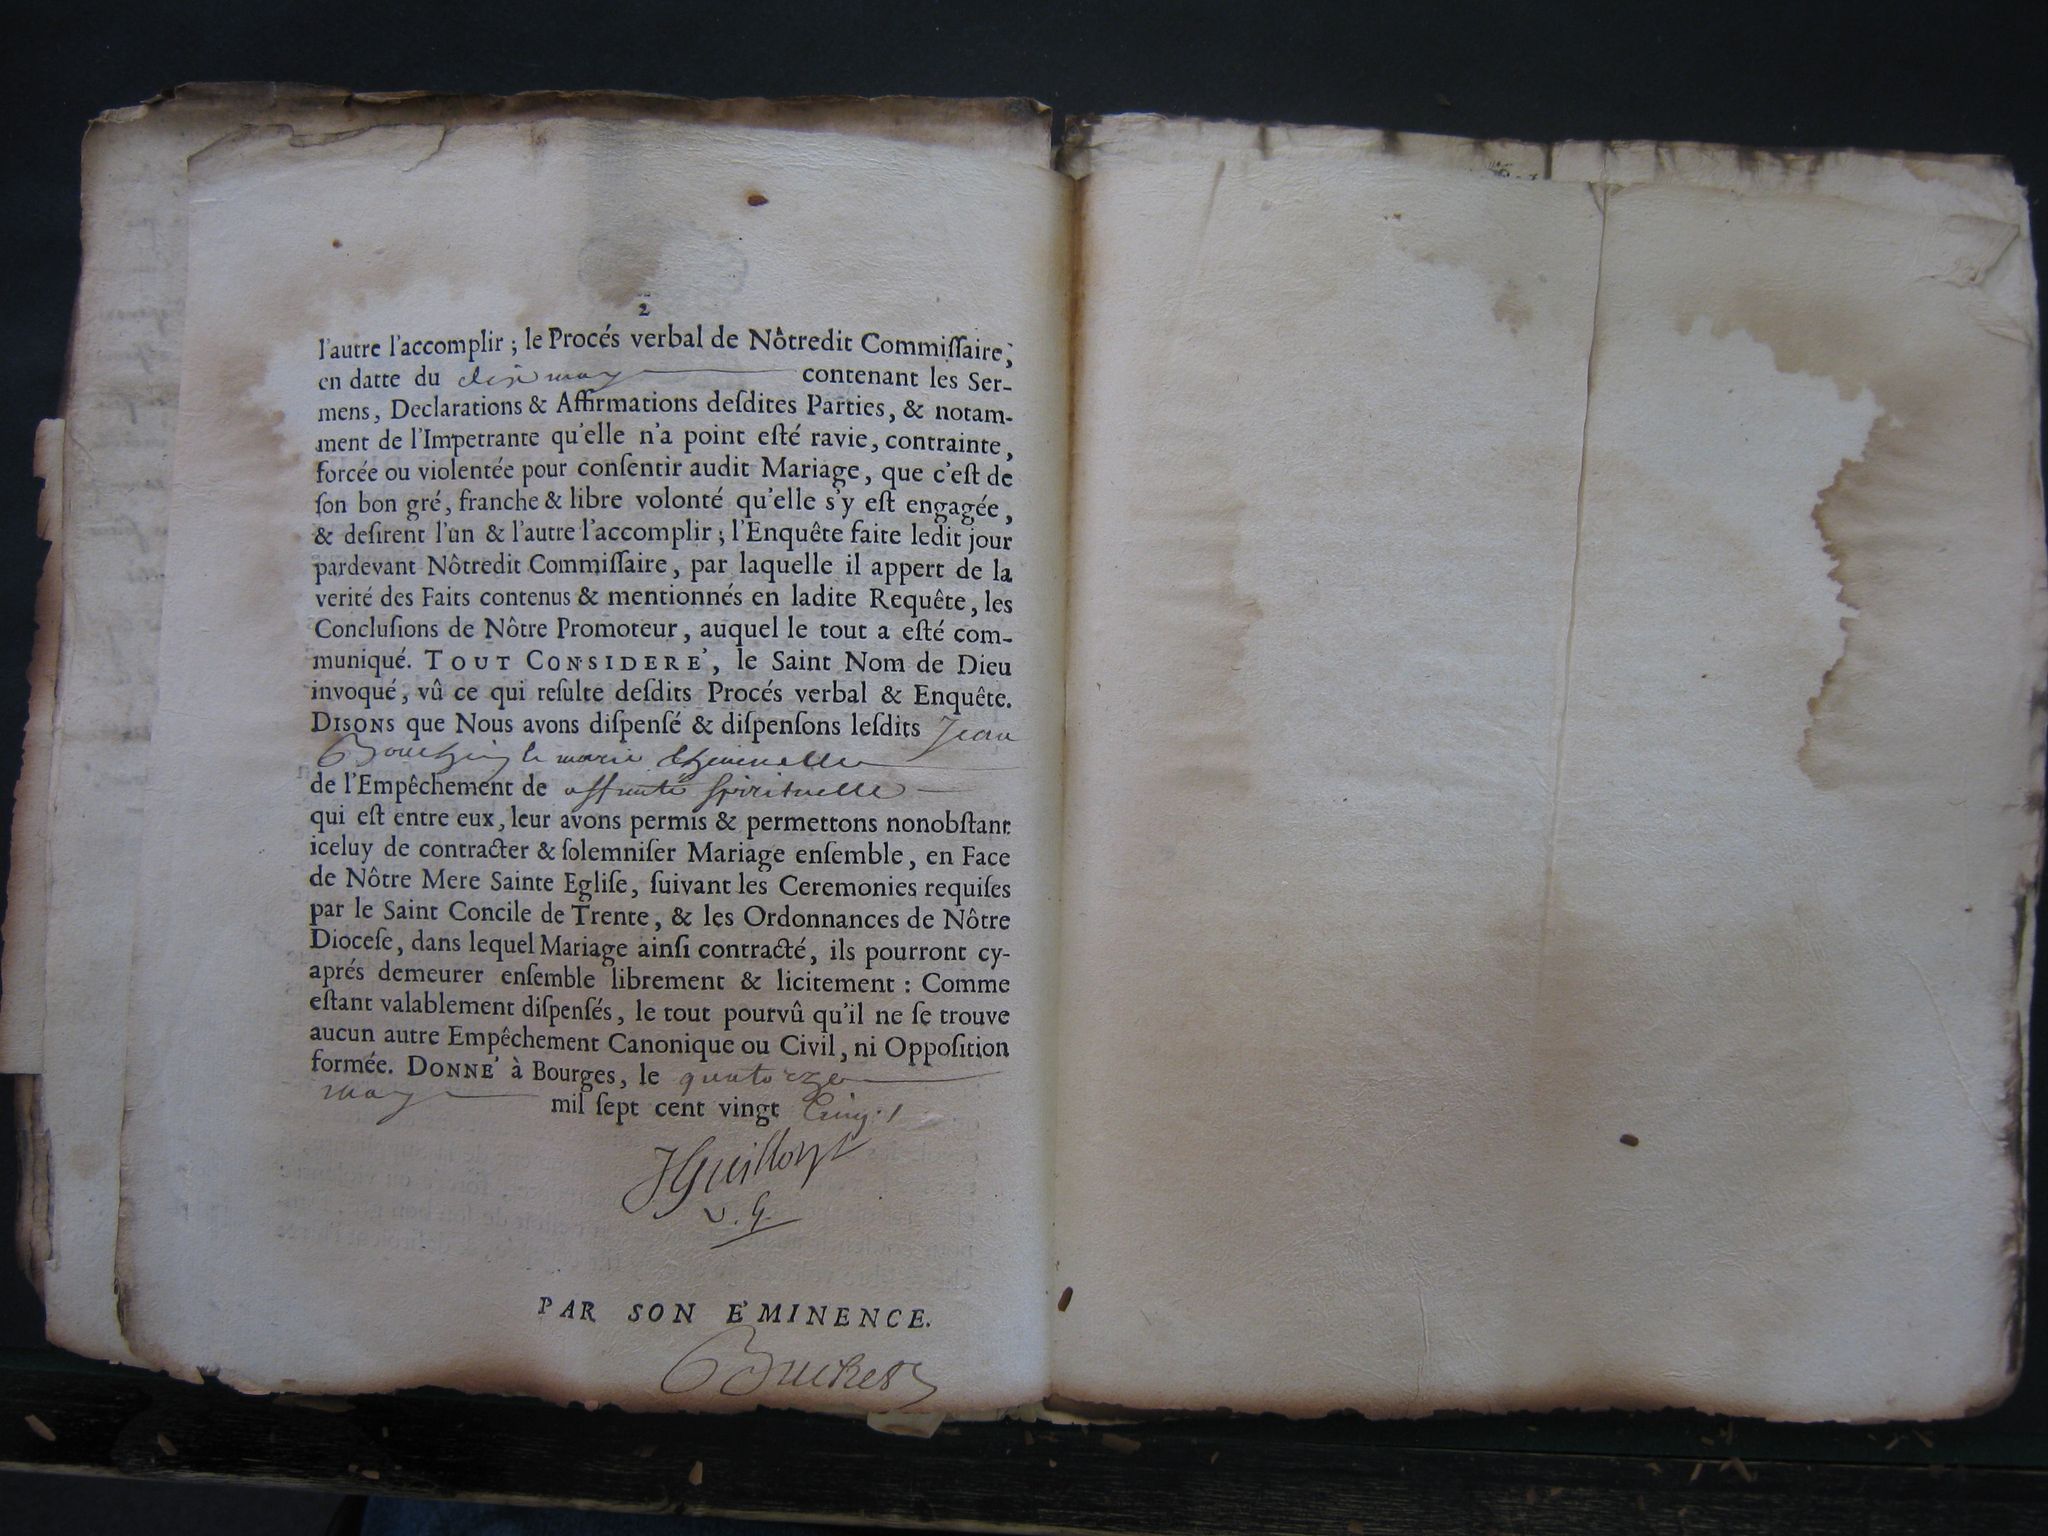 2
l'autre l'accomplir ; le Procés verbal de Nôtredit Commiſſaire,
en datte du dix may contenant les Ser-
mens, Declarations & Affirmations deſdites Parties, & notam-
ment de l'Impetrante qu'elle n'a point eſté ravie, contrainte,
forcée ou violentée pour conſentir audit Mariage, que c'eſt de
ſon bon gré, franche & libre volonté qu'elle s'y eſt engagée,
& deſirent l'un & l'autre l'accomplir ; l'Enquête faite ledit jour
pardevant Nôtredit Commiſſaire, par laquelle il appert de la
verité des Faits contenus & mentionnés en ladite Requête, les
Concluſions de Nôtre Promoteur, auquel le tout a eſté com-
muniqué. TOUT CONSIDERE', le Saint Nom de Dieu
invoqué, vû ce qui reſulte deſdits Procés verbal & Enquête.
DISONS que Nous avons diſpenſé & diſpenſons leſdits Jean
marie
de l'Empêchement de affinité spirituelle
qui eſt entre eux, leur avons permis & permettons nonobſtant
iceluy de contracter & ſolemniſer Mariage enſemble, en Face
de Nôtre Mere Sainte Egliſe, ſuivant les Ceremonies requiſes
par le Saint Concile de Trente, & les Ordonnances de Nôtre
Dioceſe, dans lequel Mariage ainſi contracté, ils pourront cy-
aprés demeurer enſemble librement & licitement : Comme
eſtant valablement diſpenſés, le tout pourvû qu'il ne ſe trouve
aucun autre Empêchement Canonique ou Civil, ni Oppoſition
formée. DONNE' à Bourges, le quatorze
may mil ſept cent vingt Cinq
v. g.
PAR SON E'MINENCE.